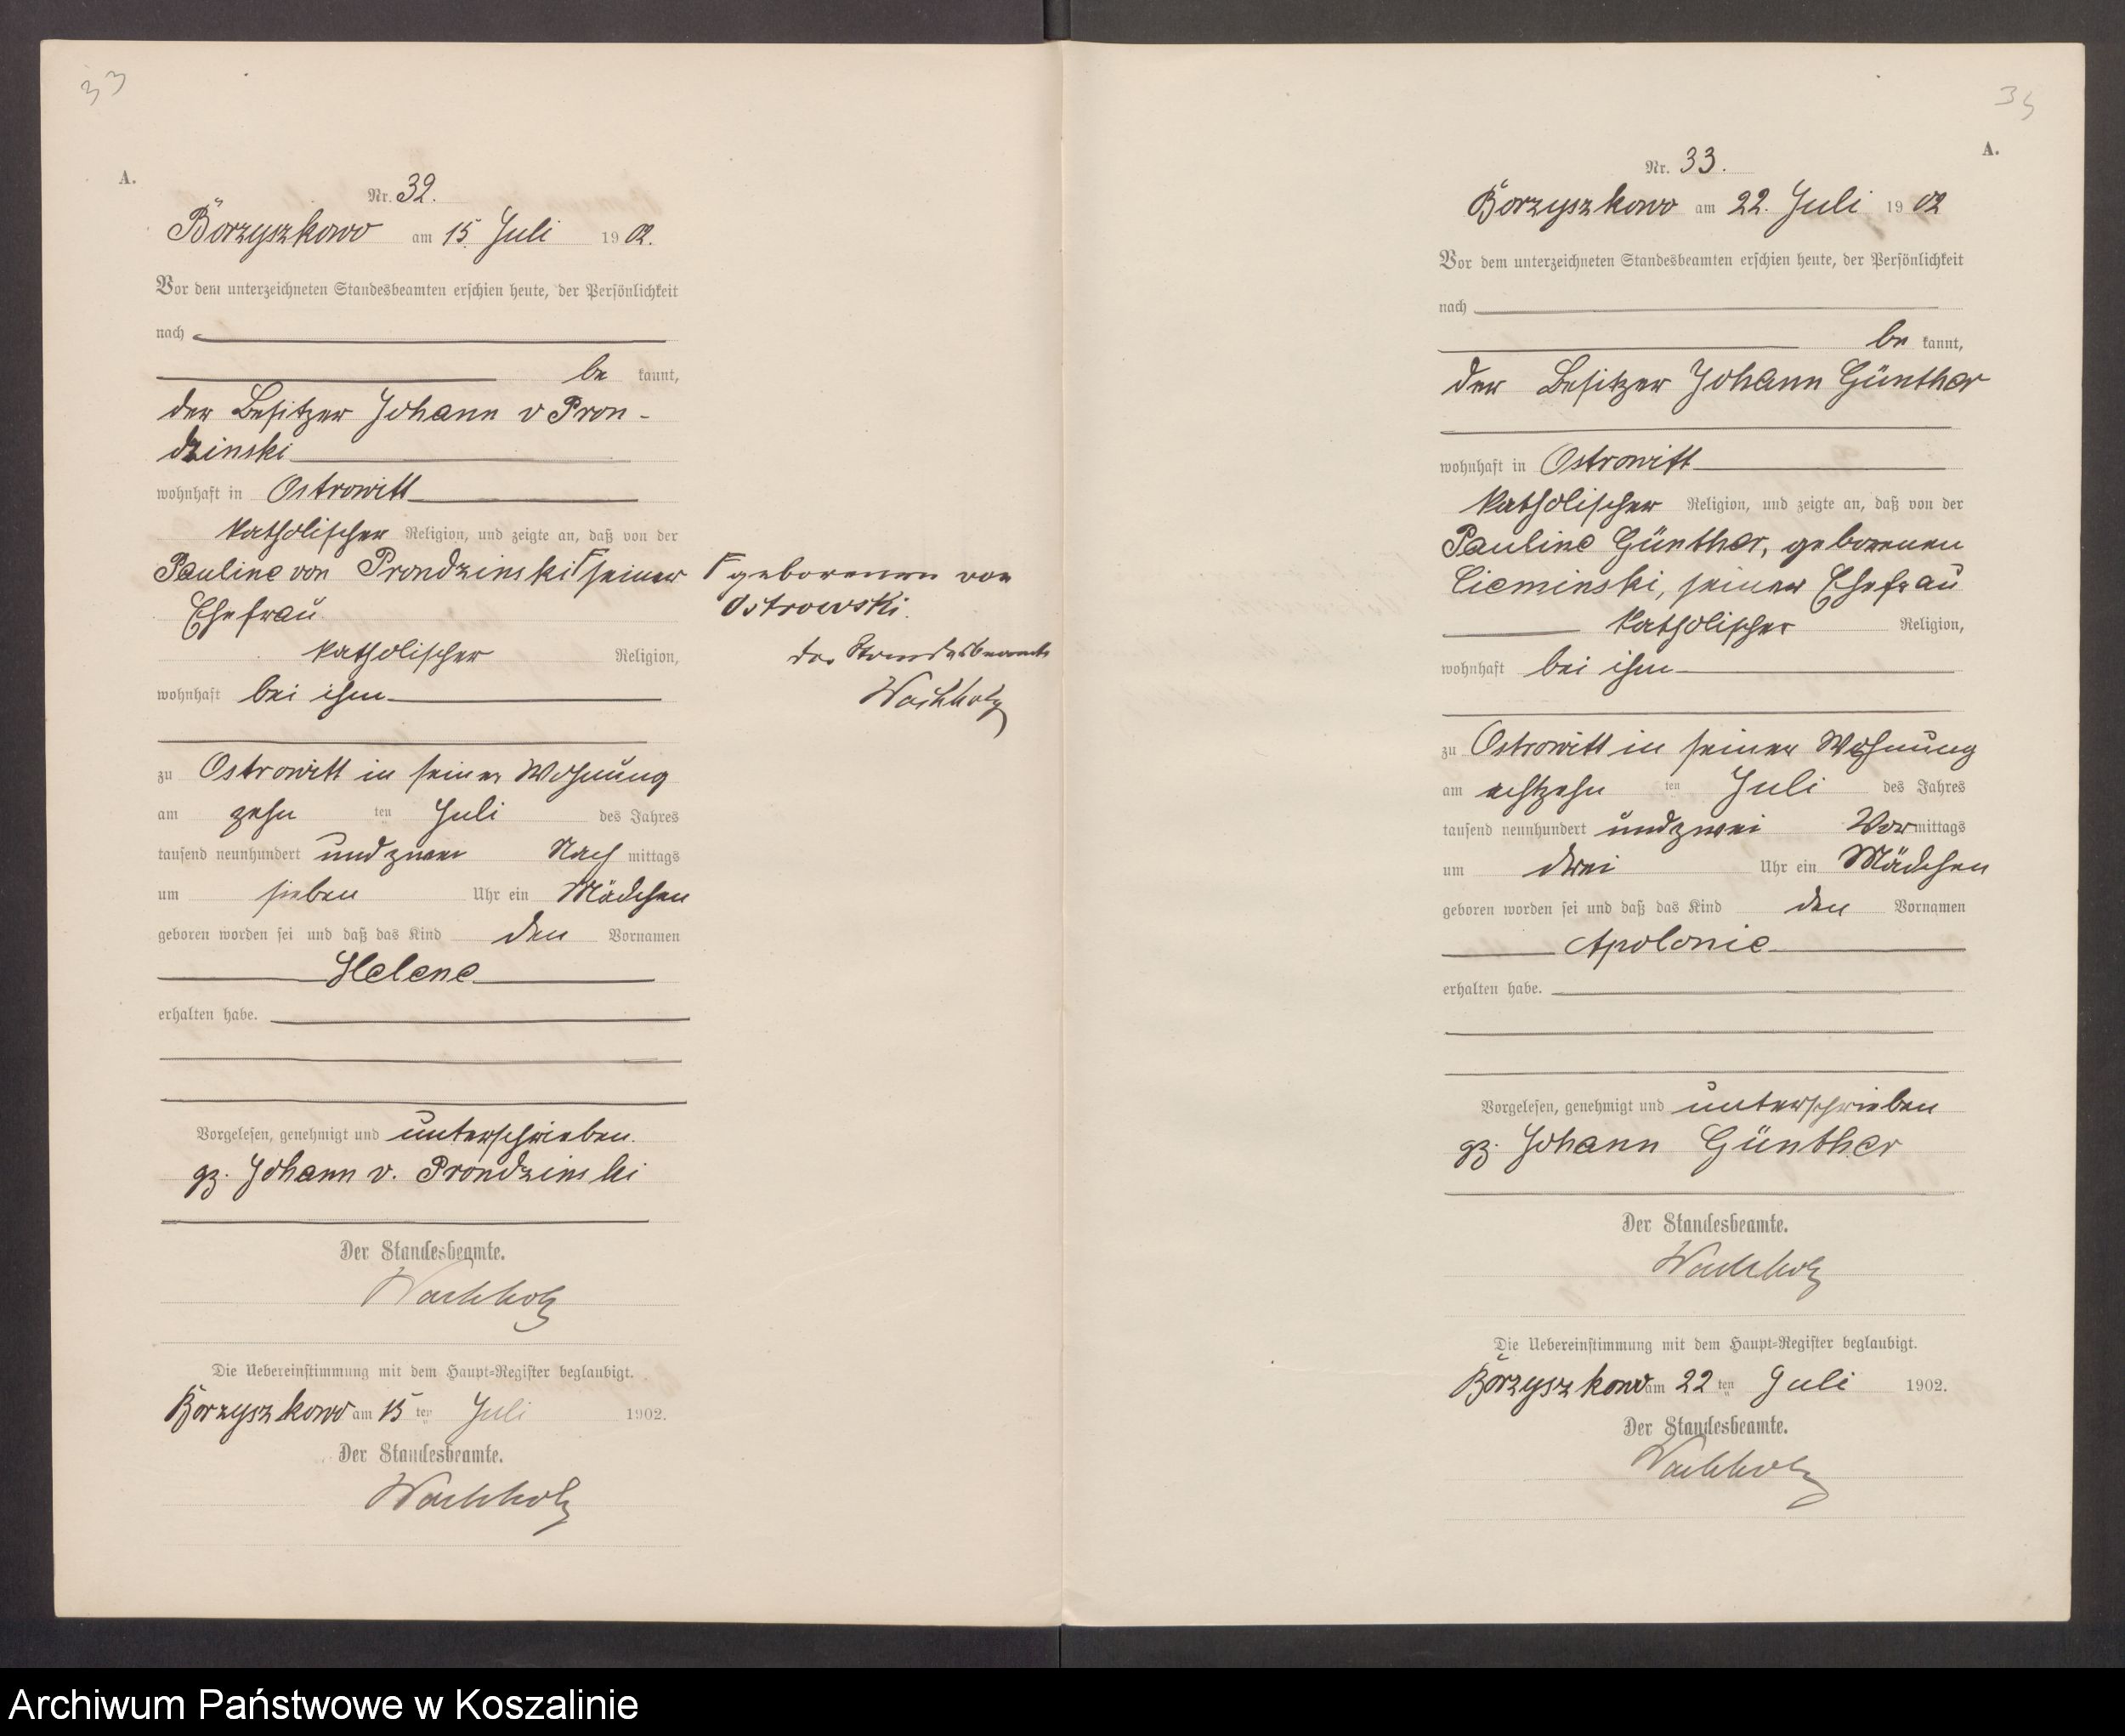 33
A.
Nr. 32.
Borzyszkowo am 15. Juli 1902.
Vor dem unterzeichneten Standesbeamten erschien heute, der Persönlichkeit
nach
be kannt,
der Besitzer Johann v Pron-
dzinski
wohnhaft in Ostrowitt
katholischer Religion, und zeigte an, daß von der
Pauline von Prondzinski seiner
Ehefrau
katholischer Religion,
wohnhaft bei ihm
zu Ostrowitt in seiner Wohnung
am zehn ten Juli des Jahres
tausend neunhundert und zwei Nach mittags
um sieben Uhr ein Mädchen
geboren worden sei und daß das Kind den Vornamen
Helene
erhalten habe.
Vorgelesen, genehmigt und unterschrieben.
gz. Johann v. Prondzinski
Der Standesbeamte.
Wachholz
Die Uebereinstimmung mit dem Haupt-Register beglaubigt.
Borzyszkowo am 15 ten Juli 1902.
Der Standesbeamte.
Wachholz
geborenen von
Ostrowski.
der Standesbeamte
Wachholz
A.
Nr. 33.
Borzyszkowo am 22. Juli 1902
Vor dem unterzeichneten Standesbeamten erschien heute, der Persönlichkeit
nach
be kannt,
der Besitzer Johann Günther
wohnhaft in Ostrowitt
katholischer Religion, und zeigte an, daß von der
Pauline Günther, geborenen
Cieminski, seiner Ehefrau
katholischer Religion,
wohnhaft bei ihm
zu Ostrowitt in seiner Wohnung
am achtzehn ten Juli des Jahres
tausend neunhundert und zwei Vormittags
um drei Uhr ein Mädchen
geboren worden sei und daß das Kind den Vornamen
Apolonie
erhalten habe.
Vorgelesen, genehmigt und unterschrieben
gz. Johann Günther
Der Standesbeamte.
Wachholz
Die Uebereinstimmung mit dem Haupt-Register beglaubigt.
Borzyszkowo am 22 ten Juli 1902.
Der Standesbeamte.
Wachholz
Archiwum Państwowe w Koszalinie